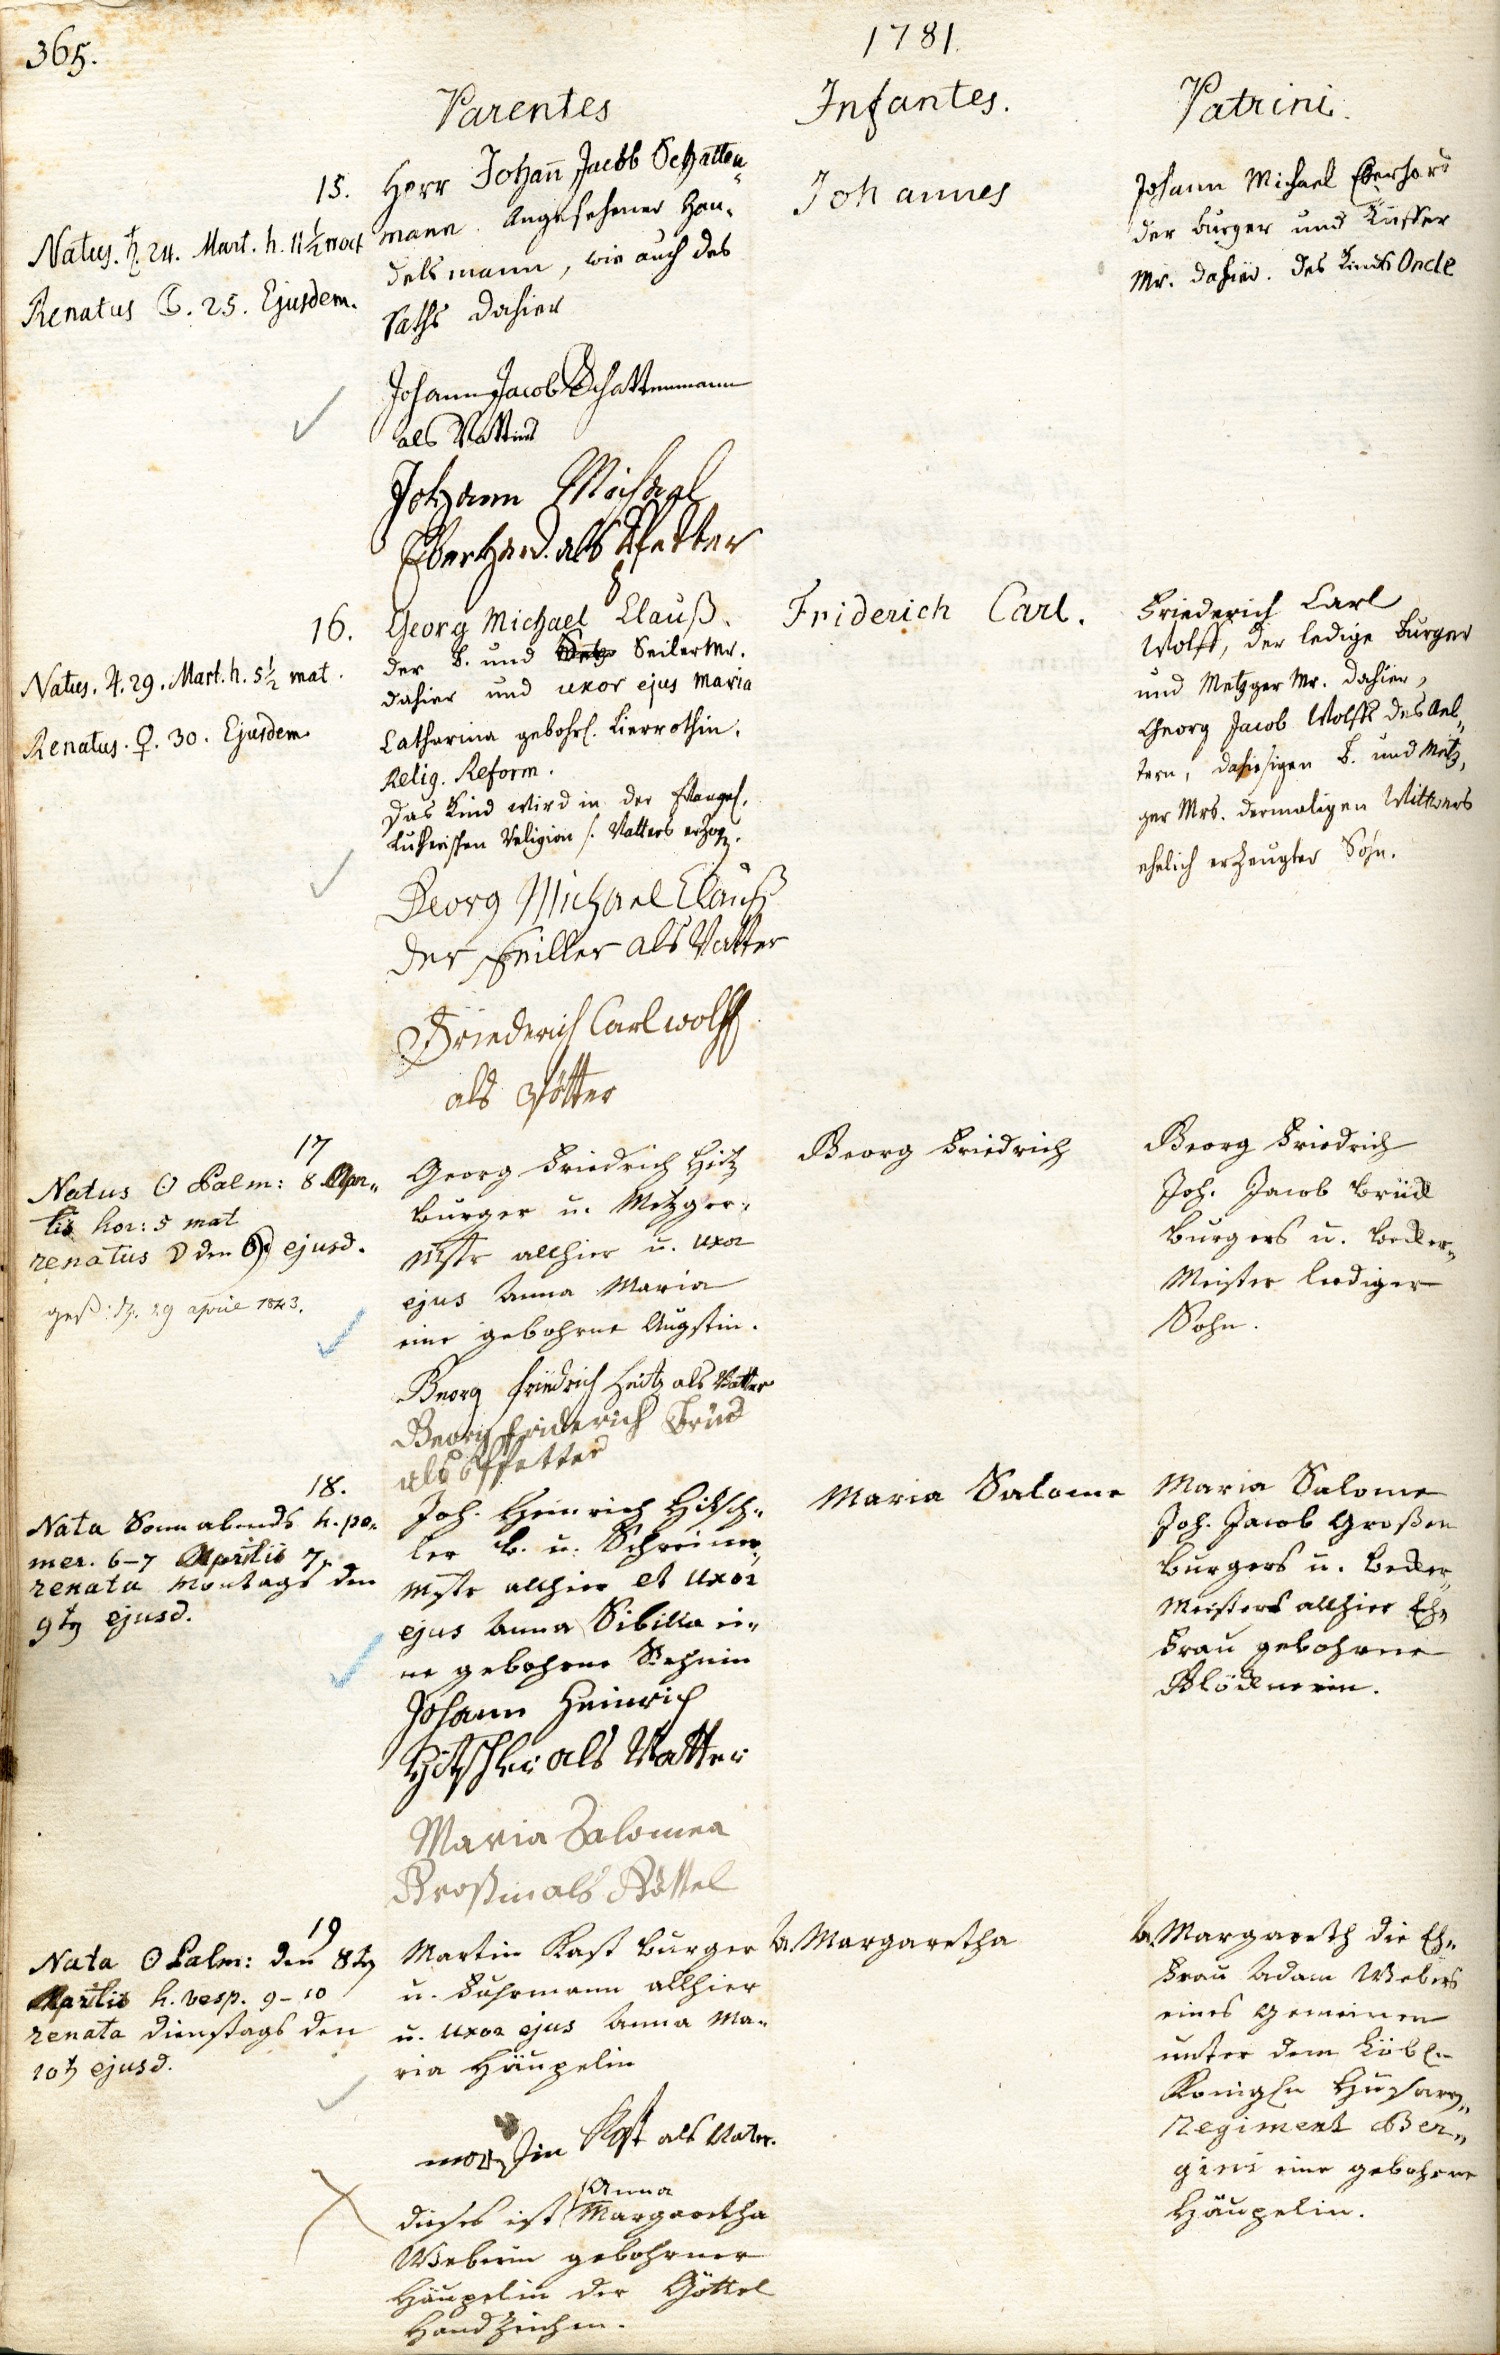 365.
1781.
Parentes
Infantes.
Patrini.
15.
Natus. ♄. 24. Mart. h. 11½ noct
Renatus ☉. 25. Ejusdem.
Herr Johann Jacob Schatten„
mann. Angesehener Han„
delsmann, wie auch des
Raths dahier
Johann Jacob Schattenmann
als Vatter
Johann Michael
Eberhard als Pfetter
Johannes
Johann Michael Eberhard
der burger und Kuffer
Mr. dahier. des Kinds Oncle
16.
Natus. ♃. 29. Mart. h. 5½ mat.
Renatus. ♀. 30. Ejusdem.
Georg Michael Clauß.
der B. und Seiler Mr.
dahier und uxor ejus Maria
Catharina gebohrl. Lierrothin.
Relig. Reform.
Das Kind wird in der Evangel.
Lutherischen Religion s. Vatters erzog.
Georg Michael Clauß
der Seiller als Vatter
Friederich Carl wolff
als Pfötter
Friderich Carl.
Friederich Carl
Wolff, der ledige burger
und Metzger Mr. dahier,
Georg Jacob Wolffs des Ael„
tern, dahiesigen B. und Metz„
ger Mrs. dermaligen Wittwers
ehelich erzeugter Sohn.
17
Natus ☉ Palm: 8 Apri„
lis hor: 5 mat
renatus ☽ den 9) ejusd.
gest: d. 29 april 1843.
Georg Friedrich Hitz
burger u. Metzger„
Mstr allhier u. uxor
ejus Anna Maria
eine gebohrne Augstin.
Georg friedrich Heitz als Vatter
Georg friderich Brück
als Pfetter
Georg Friedrich
Georg Friedrich
Joh. Jacob Brück
burgers u. Becker„
Meister lediger
Sohn.
18.
Nata Sonnabends h. po„
mer. 6–7 Aprilis 7.
renata Montags den
9t ejusd.
Joh. Heinrich Hitsch„
ler b. u. Schreiner„
Mstr allhier et uxor
ejus Anna Sibilla ei„
ne gebohrne Stehnin
Johann Heinrich
Hitschler als Vatter
Maria Salomea
Großin als Göttel
Maria Salome
Maria Salome
Joh. Jacob Großen
burgers u. Becker„
Meisters allhier Eh„
frau gebohrne
Blöcknerin.
19
Nata ☉ Palm: den 8t
Aprilis h. vesp. 9–10
renata Dienstags den
10t ejusd.
Martin Kast burger
u. Fuhrmann allhier
u. uxor ejus Anna Ma„
ria Häupelin
martin Kast als Vater.
Anna
dieses ist Margaretha
Weberin gebohrner
Häupelin der Göttel
Handzeichen.
A. Margaretha
A. Margareth die Eh„
frau Adam Webers
eines Gemeinen
unter dem Löbl.
Königln Husaren„
Regiment Ber„
gini eine gebohrne
Häupelin.